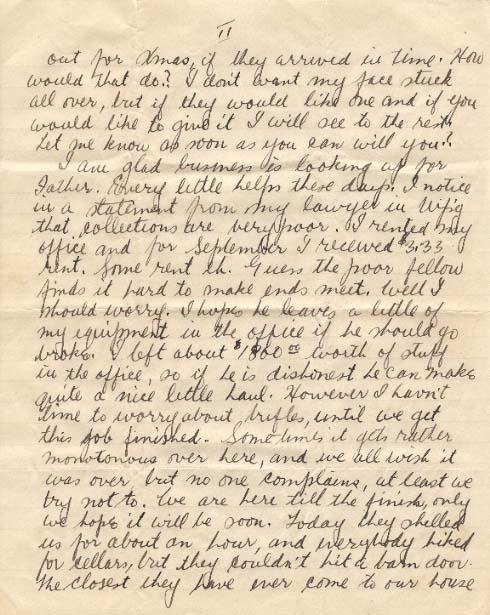 II
out for Xmas, if they arrived in time. How
would that do? I don't want my face stuck
all over, but if they would like one and if you
would like to give it I will see to the rest.
Let me know as soon as you can will you?
I am glad business is looking up for
Father. Every little helps these days. I notice
in a statement from my lawyer in Wp'g
that collections are very poor. I rented my
office and for September I received $3.33
rent. Some rent eh. Guess the poor fellow
finds it hard to make ends meet. Well I
should worry. I hope he leaves a little of
my equipment in the office if he should go
broke. I left about $1800 00 worth of stuff
in the office, so if he is dishonest he can make
quite a nice little haul. However I havn't
time to worry about trifles, until we get
this job finished. Sometimes it gets rather
monotonous over here, and we all wish it
was over, but no one complains, at least we
try not to. We are here till the finish, only
we hope it will be soon. Today they shelled
us for about an hour, and everybody hiked
for cellars, but they couldn't hit a barn door.
The closest they have ever come to our house